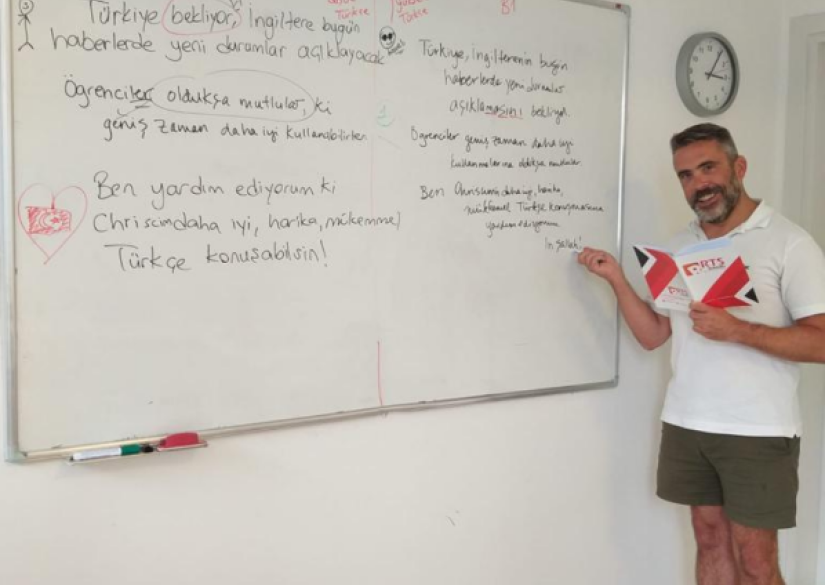 Türkiye bekliyor, İngiltere bugün
haberlerde yeni durumlar açıklayacak
Öğrenciler oldukşa mutlular, ki
geniş zaman daha iyi kullanabilirler
Ben yardım ediyorum ki
Chriscim daha iyi, harika, mükemmel
Türkçe konuşabilsin!
Türkçe
Türkçe
B1
Türkiye, İngilterenin bugün
haberlerde yeni durumlar
açıklamasını bekliyor.
Öğrenciler geniş zaman daha iyi
kullanmalarına oldukşa mutlular.
Ben daha iyi, harika,
mükkemel Türkçe konuşmasına
yardım ediyorum
İnşallah!
RTS